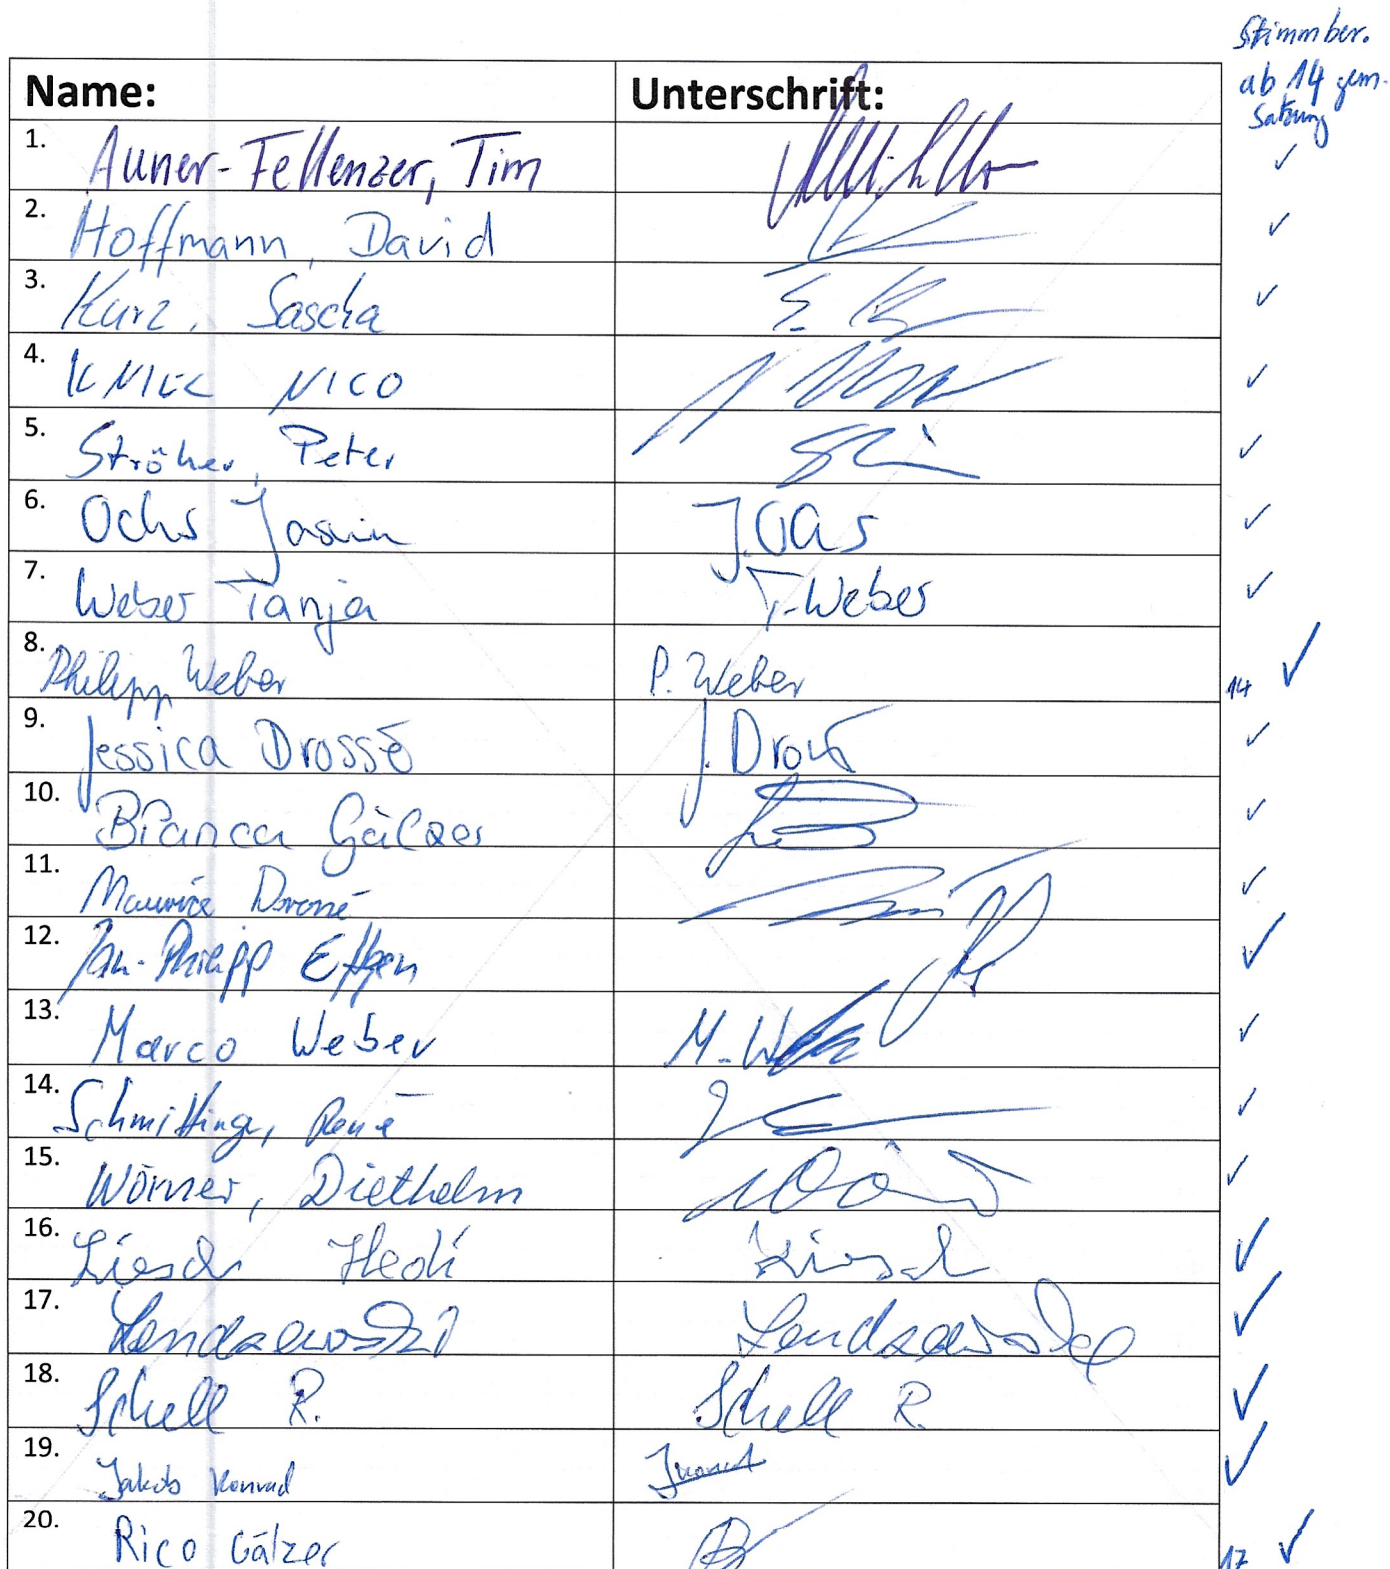 Stimmber.
ab 14 gem.
Satzung
Name: Unterschrift:
1. Auner-Fellenzer, Tim ✓
2. Hoffmann, David ✓
3. Kurz, Sascha S. K ✓
4. NICO ✓
5. Ströher, Peter ✓
6. Ochs Jasmin J. Ochs ✓
7. Weber Tanja T. Weber ✓
8. Philipp Weber P. Weber 14 ✓
9. Jessica Drossé ✓
10. Bianca Gälzer ✓
11. Maurice ✓
12. Jan-Philipp Effgen ✓
13. Marco Weber ✓
14. Schmittinger, René ✓
15. Wörner, Diethelm ✓
16. Liesch Hedi Liesch ✓
17. ✓
18. Schell R. Schell R. ✓
19. Jakob Konrad ✓
20. Rico Gälzer 17 ✓